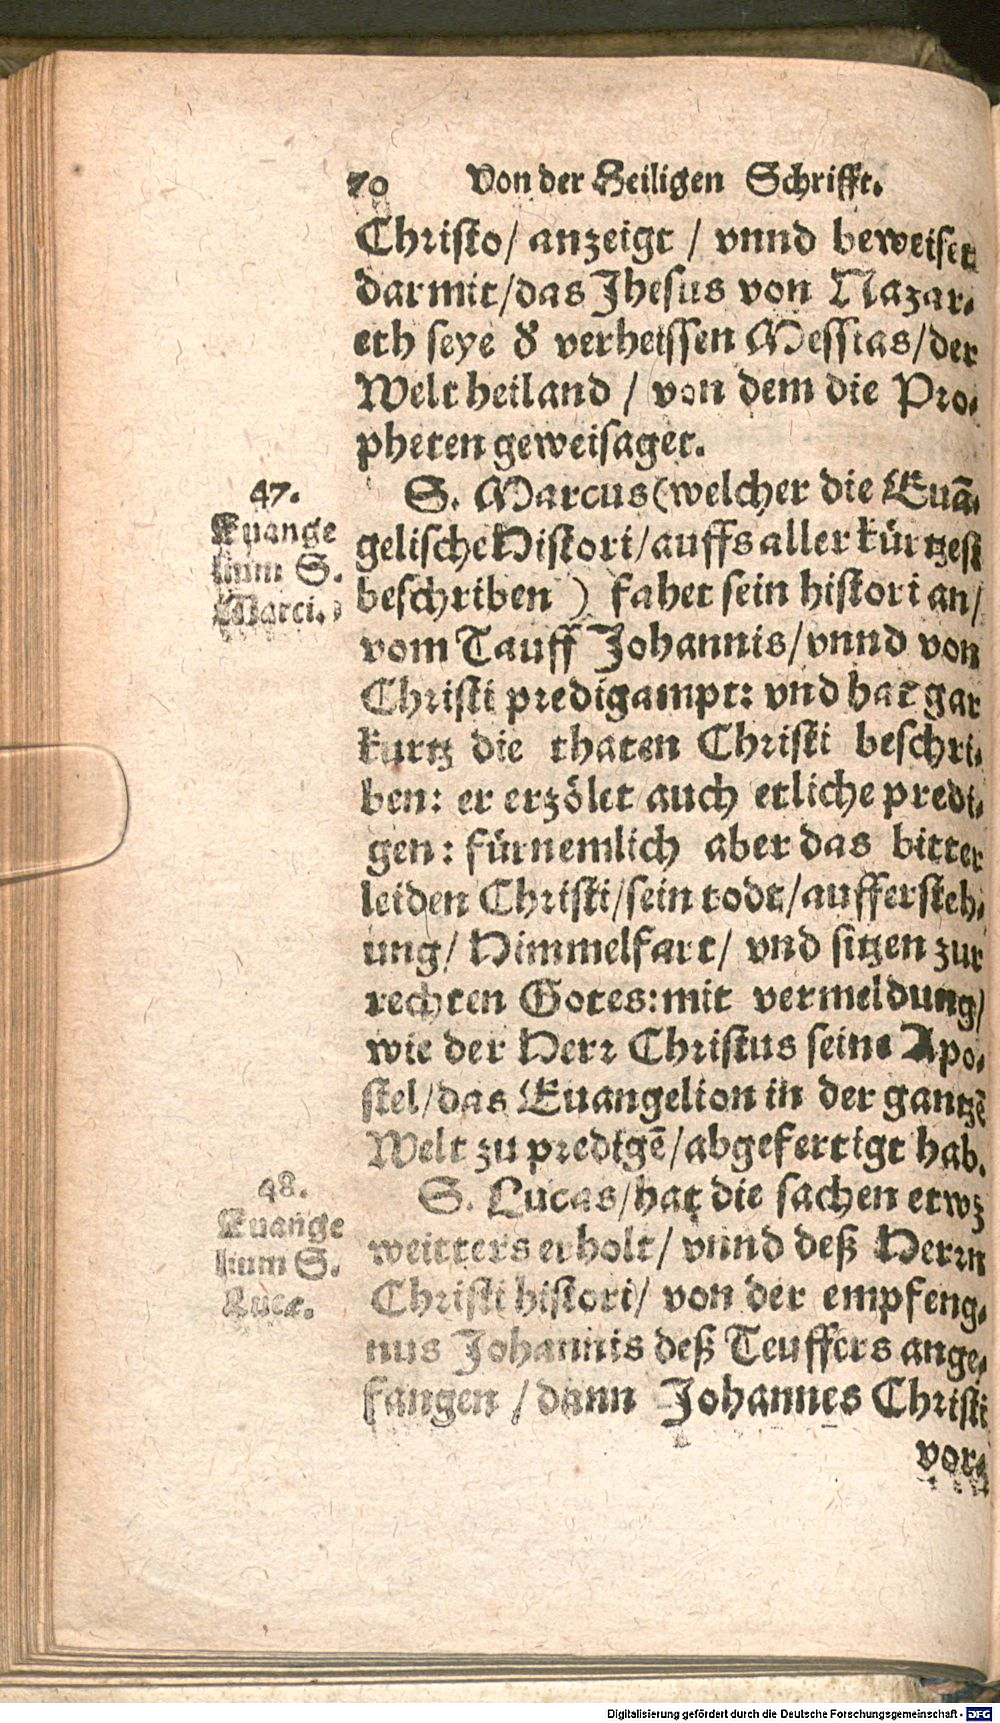 70 Von der Heiligen Schrifft.
Christo/ anzeigt / vnnd beweiset
darmit/das Jhesus von Nazar-
eth seye d' verheissen Messias/der
Welt heiland / von dem die Pro-
pheten geweisaget.
47.
Euange
lium S.
Marci.
S. Marcus(welcher die Euã-
gelische Histori/auffs aller kürtzest
beschriben ) fahet sein histori an/
vom Tauff Johannis/vnnd von
Christi predigampt: vnd hat gar
kurtz die thaten Christi beschri-
ben: er erzölet auch etliche predi-
gen: fürnemlich aber das bitter
leiden Christi/sein todt/auffersteh-
ung/ Himmelfart/ vnd sitzen zur
rechten Gotes:mit vermeldung/
wie der Herr Christus seine Apo-
stel/das Euangelion in der gantzẽ
Welt zu predigẽ/abgefertigt hab.
48.
Euange
lium S.
Lucæ.
S. Lucas/hat die sachen etwz
weitters erholt/ vnnd deß Herrn
Christi histori/ von der empfeng-
nus Johannis deß Teuffers ange-
fangen / dann Johannes Christi
vor-
Digitalisierung gefördert durch die Deutsche Forschungsgemeinschaft - DFG